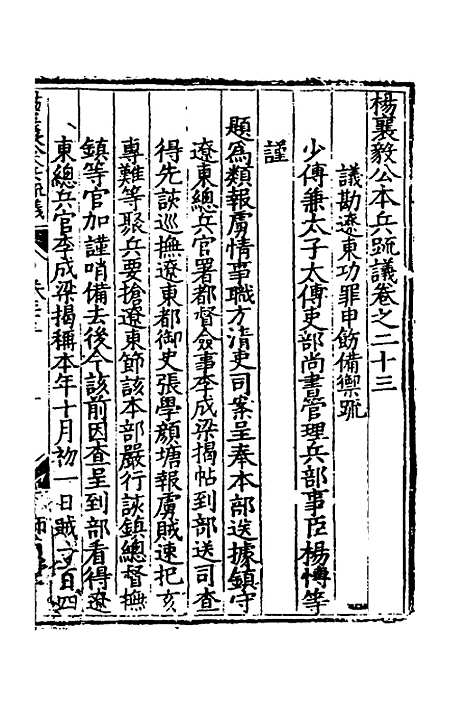 楊襄毅公本兵疏議卷之二十三
議勘遼東功罪申飭備禦疏
少傅兼太子太傅吏部尚書管理兵部事臣楊博等
謹
題爲類報虜情事職方清吏司案呈奉本部送據鎮守
遼東總兵官署都督僉事李成梁揭帖到部送司查
得先該巡撫遼東都御史張學顏塘報虜賊速把亥
專難等聚兵要搶遼東節該本部嚴行該鎮總督撫
鎮等官加謹哨備去後今該前因查呈到部看得遼
東總兵官李成梁揭稱本年十月初一日賊